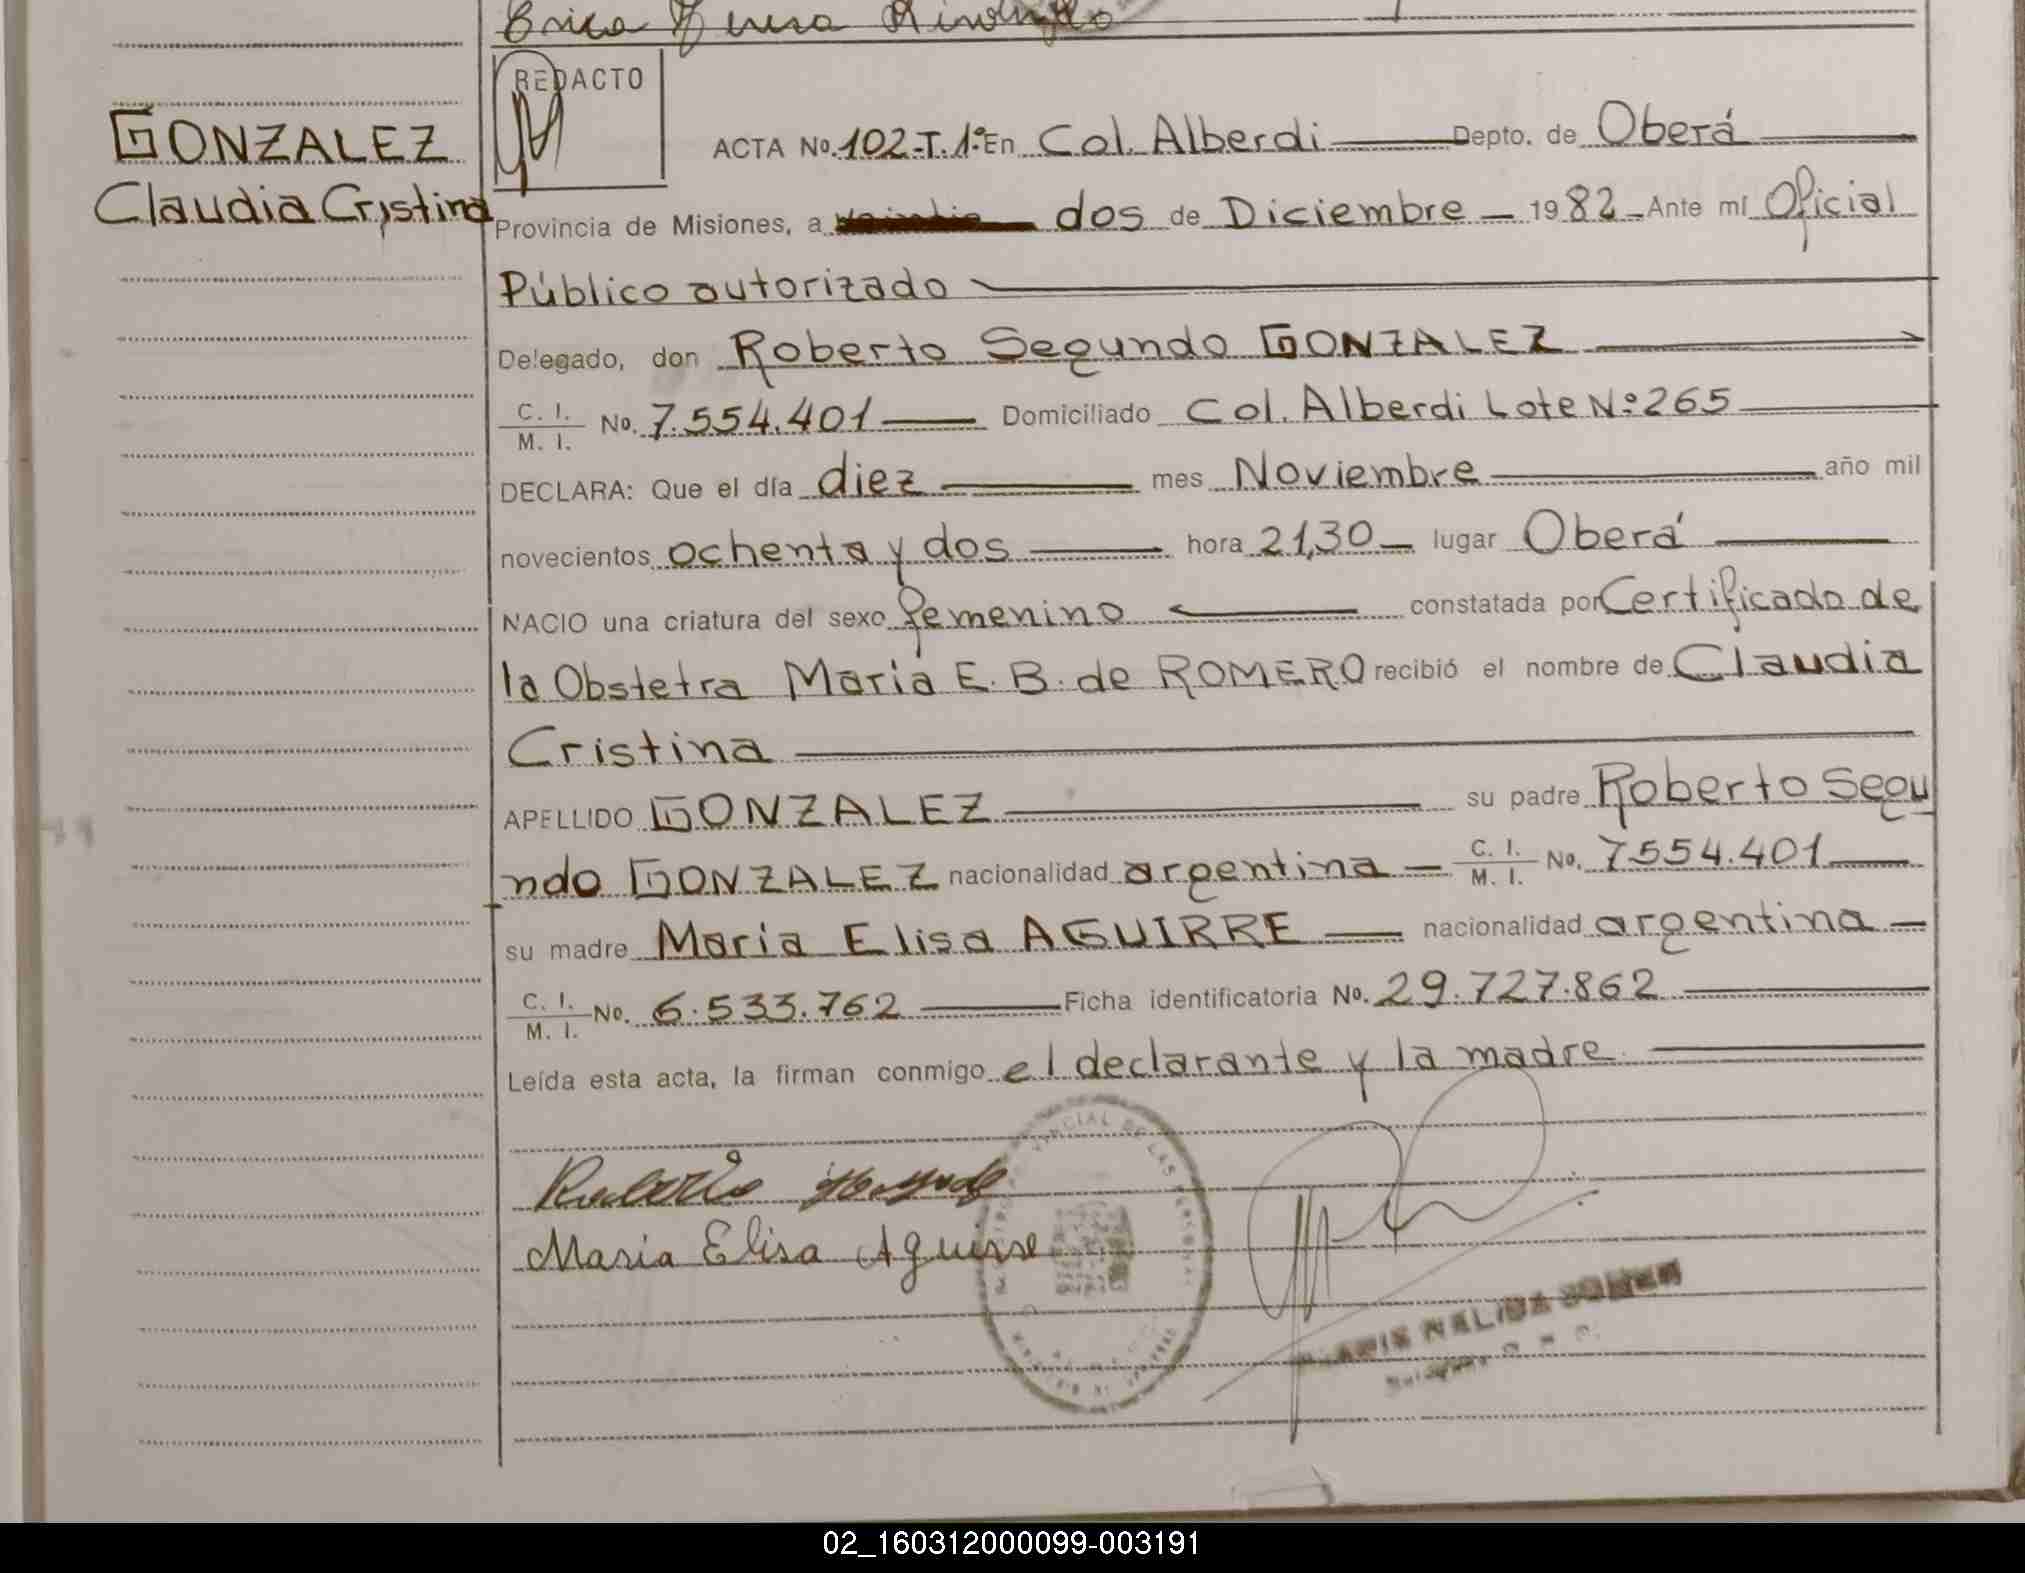 Erica
REDACTO
GONZALEZ
Claudia Cristina
ACTA No. 102-T.1º En Col. Alberdi Depto. de Oberá
Provincia de Misiones, a dos de Diciembre 1982 Ante mí Oficial
Público autorizado
Delegado, don Roberto Segundo GONZALEZ
C. I. / M. I. No. 7.554.401 Domiciliado Col. Alberdi Lote Nº 265
DECLARA: Que el día diez mes Noviembre año mil
novecientos ochenta y dos hora 21,30 lugar Oberá
NACIO una criatura del sexo femenino constatada por Certificado de
la Obstetra María E. B. de ROMERO recibió el nombre de Claudia
Cristina
APELLIDO GONZALEZ su padre Roberto Segu
ndo GONZALEZ nacionalidad argentina C. I. / M. I. No. 7554.401
su madre María Elisa AGUIRRE nacionalidad argentina
C. I. / M. I. No. 6.533.762 Ficha identificatoria No. 29.727.862
Leída esta acta, la firman conmigo el declarante y la madre.
Maria Elisa Aguirre
02_160312000099-003191